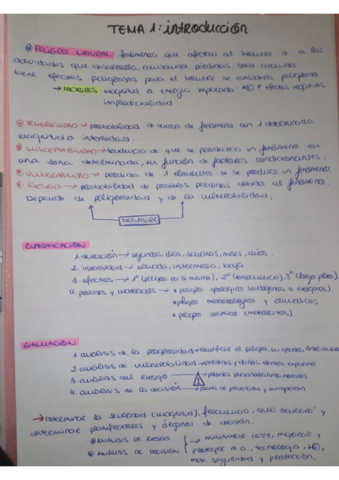 TEMA 1: introducción
PELIGRO NATURAL: fenómenos que afectan al hombre o a las
actividades que desarrolla, causando pérdidas. Será cuando
tiene efectos peligrosos para el hombre se considera peligroso.
→ FACTORES: magnitud o energía implicada: + efectos negativos
impredecibilidad
PELIGROSIDAD → probabilidad de suceso de fenómeno con 1 determinada
magnitud o intensidad
SUSCEPTIBILIDAD → tendencia de que se produzca un fenómeno en
una zona determinada, en función de factores condicionantes.
VULNERABILIDAD → pérdida de 1 elemento si se produce un fenómeno
RIESGO → probabilidad de posibles pérdidas debido al fenómeno.
Depende de peligrosidad y de la vulnerabilidad.
DESASTRE
CLASIFICACIÓN
1. duración → segundos, días, semanas, meses, años.
2. intensidad → elevada, intermedia, baja
3. efectos → 1º (peligro en sí mismo), 2º (consecuencia), 3º (largo plazo).
4. procesos y materiales → • peligro geológico (endógenos o exógenos).
• peligro meteorológicos y climáticos
• peligro cósmico (meteoritos).
EVALUACIÓN
1. análisis de la peligrosidad → identificar el peligro, su grado,
2. análisis de vulnerabilidad → pérdidas y daños,
3. análisis del riesgo →
4. análisis de la decisión → de prevención y mitigación
→ determinar la severidad (magnitud), frecuencia, y
determinar planificadores y órganos de decisión.
Análisis de riesgo → minimizar coste, mejorar y
Análisis de decisión proteger m.a., tecnología,
seguridad y protección.